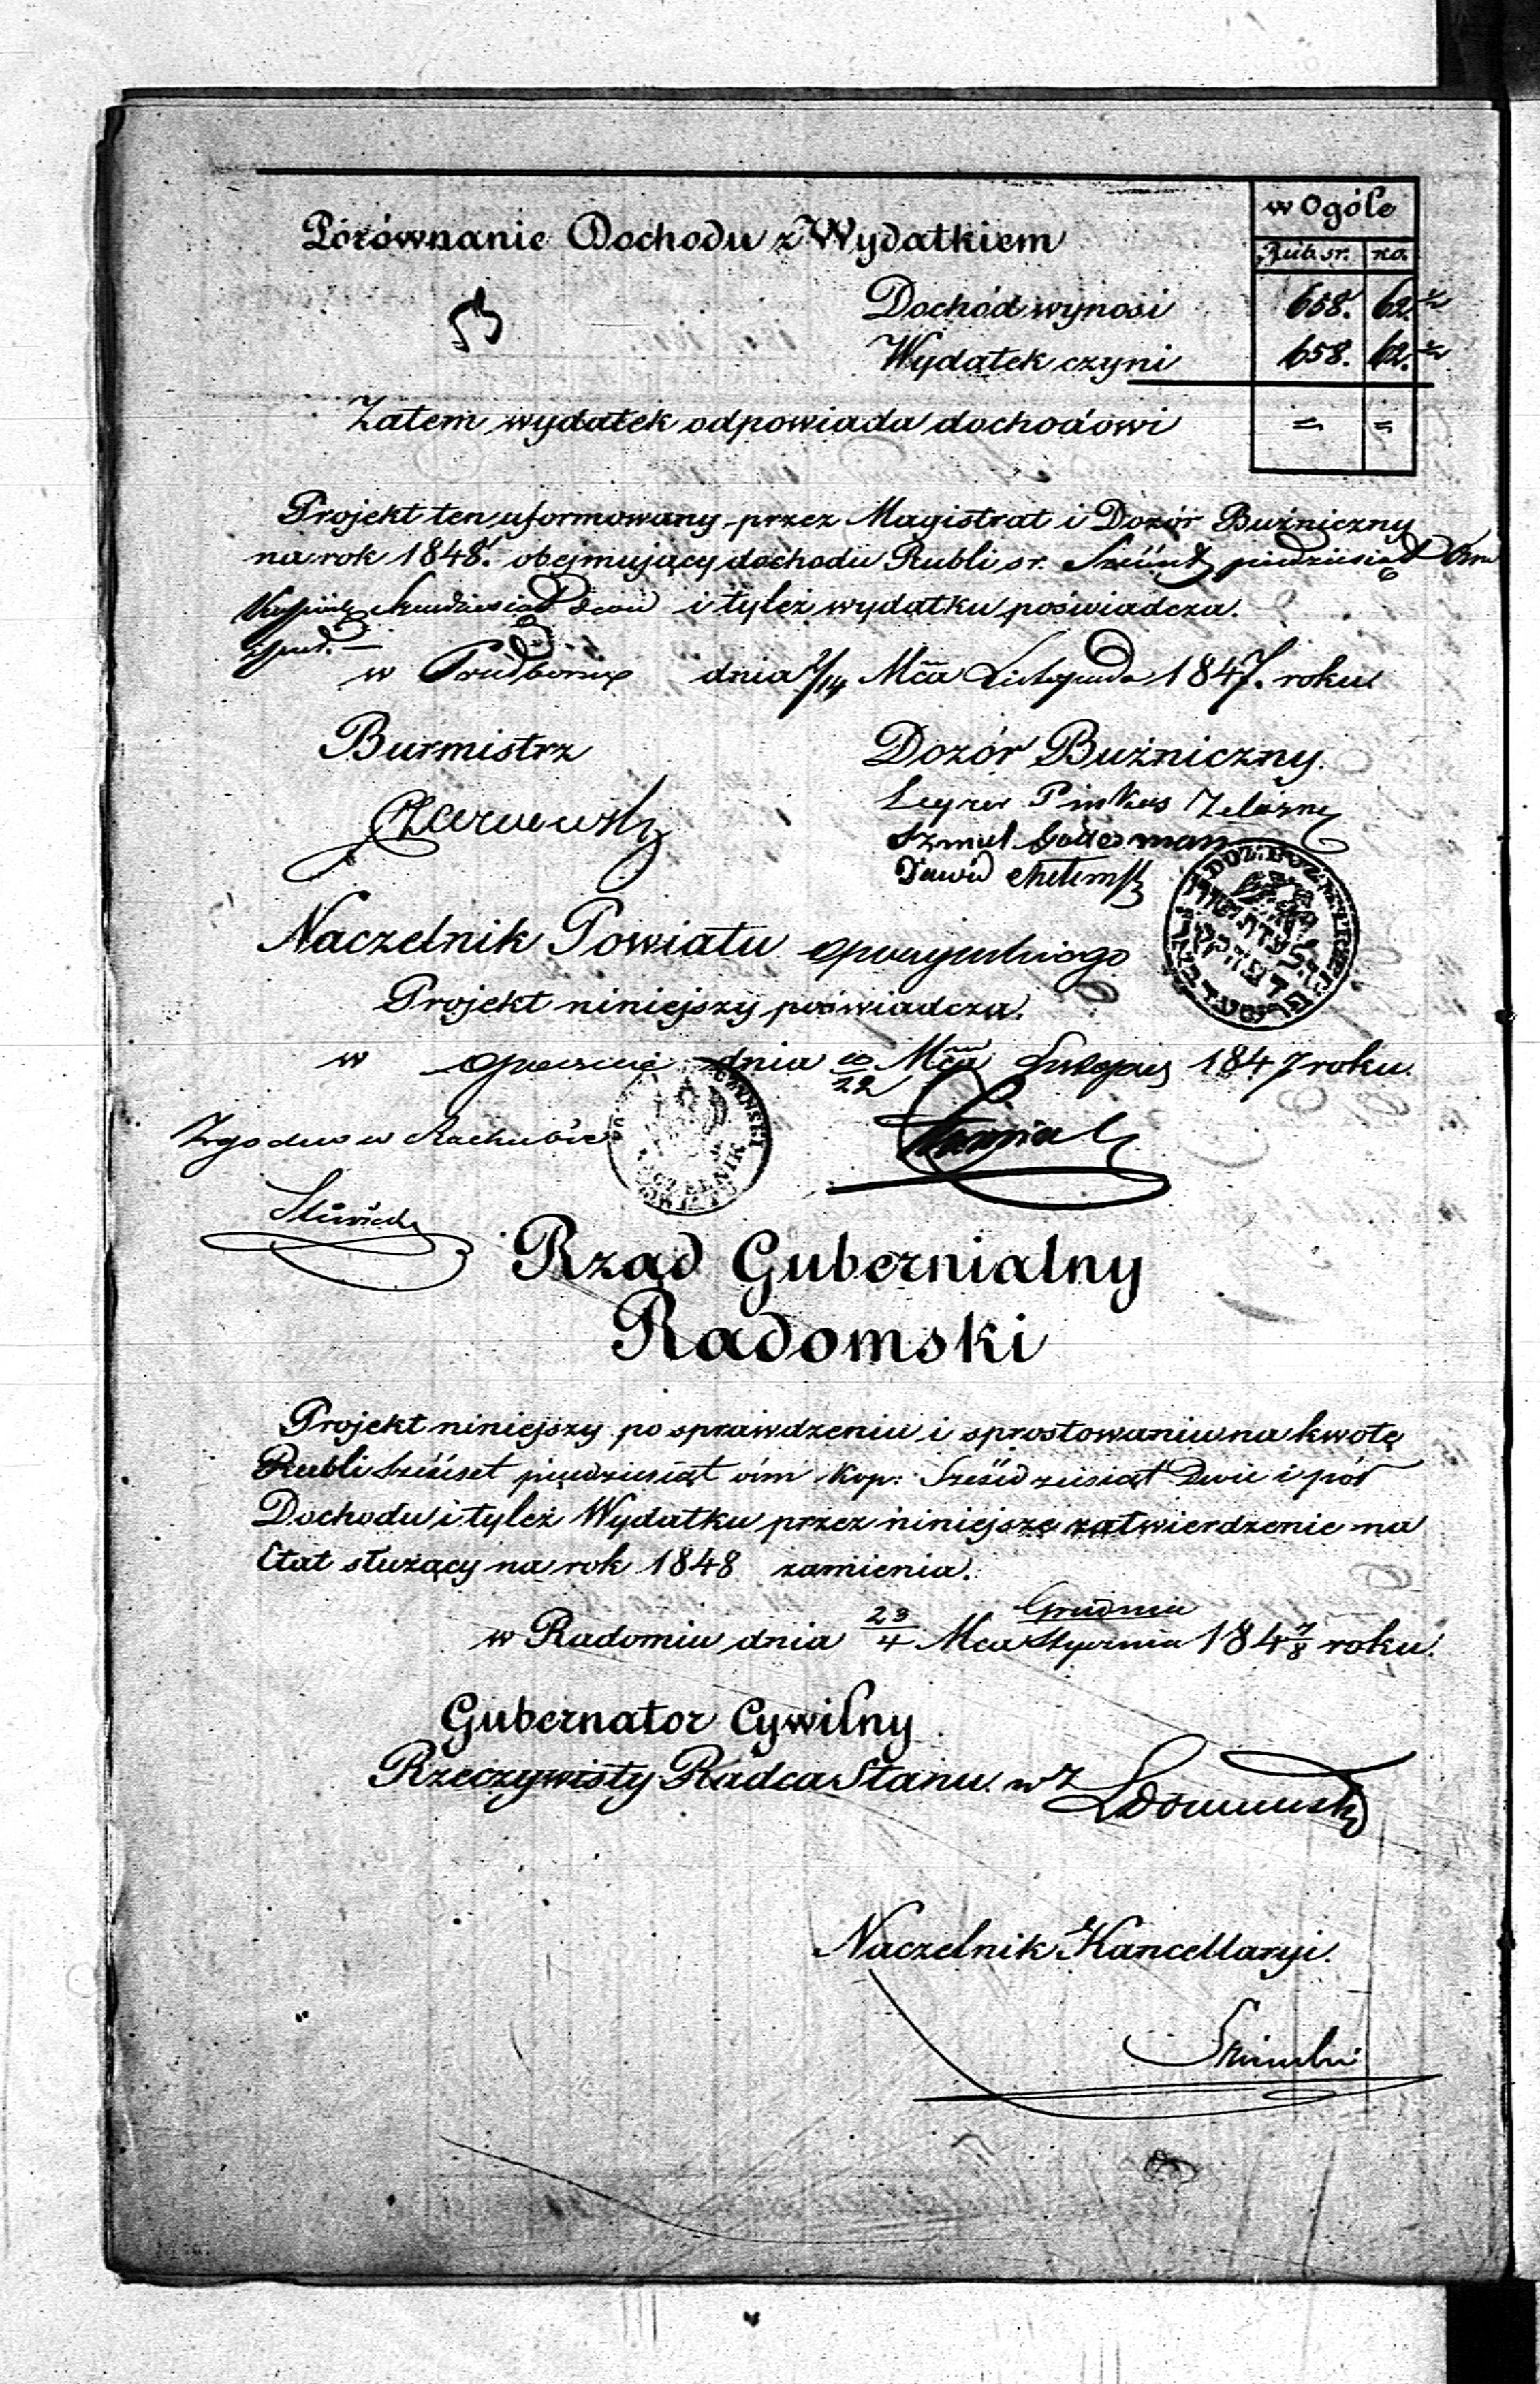 w Ogóle
Porównanie Dochodu z Wydatkiem
Rub. sr. ko.
Dochód wynosi 658. 62.½
Wydatek czyni 658. 62.½
Zatem wydatek odpowiada dochodowi = =
Projekt ten uformowany przez Magistrat i Dozór Bużniczny
na rok 1848. obejmujący dochodu Rubli sr. Sześćset pięćdziesiąt Ośm
dwa i tyleż wydatku poświadcza.
w dnia 2/14 Mca Listopada 1847. roku
Burmistrz Dozór Bużniczny.
Leyzer Pinkus Zelazny
Szmul
Dawid
Naczelnik Powiatu Opoczyńskiego
Projekt niniejszy poświadcza.
w Opocznie dnia 10/22 Mca 1847 roku
Zgodno w Rachubie
Rząd Gubernialny
Radomski
Projekt niniejszy po sprawdzeniu i sprostowaniu na kwotę
Rubli Sześćset pięćdziesiąt ośm Kop: Sześćdziesiąt Dwie i pół
Dochodu i tyleż Wydatku przez niniejsze zatwierdzenie na
Etat służący na rok 1848 zamienia.
w Radomiu dnia 23/4 Mca Grudnia/Stycznia 184 7/8 roku.
Gubernator Cywilny
Rzeczywisty Radca Stanu. w z
Naczelnik Kancellaryi.